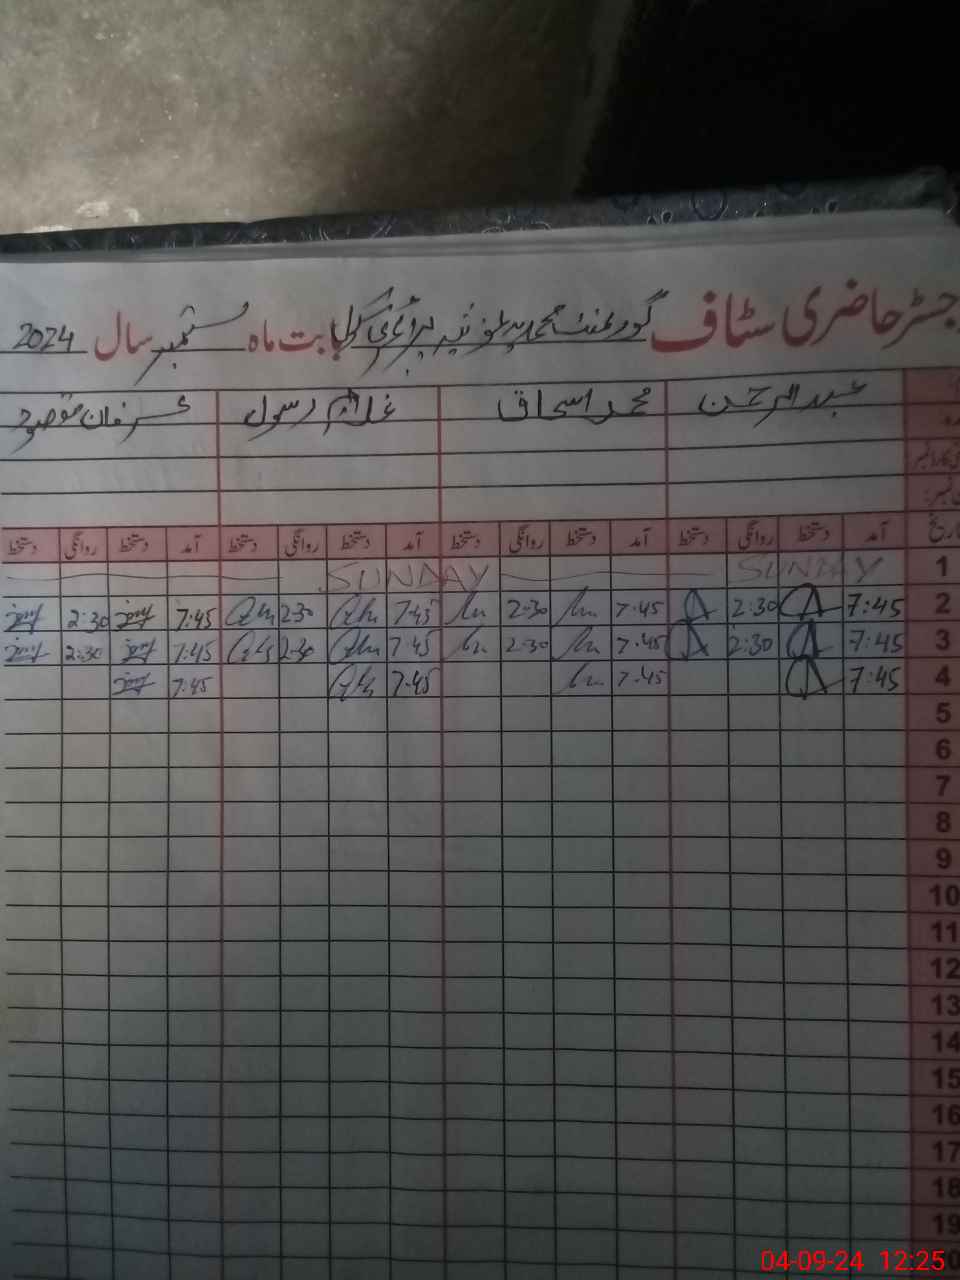 رجسٹر حاضری سٹاف گورنمنٹ پرائمری بابت ماہ ستمبر سال 2024
عبدالرحمن محمد اسحاق غلام رسول عرفان مقصود
تاریخ آمد دستخط روانگی دستخط آمد دستخط روانگی دستخط آمد دستخط روانگی دستخط آمد دستخط روانگی دستخط
1 SUNDAY SUNDAY
2 7:45 2:30 7.45 2.30 7.45 2.30 7.45 2:30
3 7:45 2:30 7.45 2.30 7.45 2.30 7.45 2:30
4 7:45 7.45 7.45 7.45
5
6
7
8
9
10
11
12
13
14
15
16
17
18
19
04-09-24 12:25